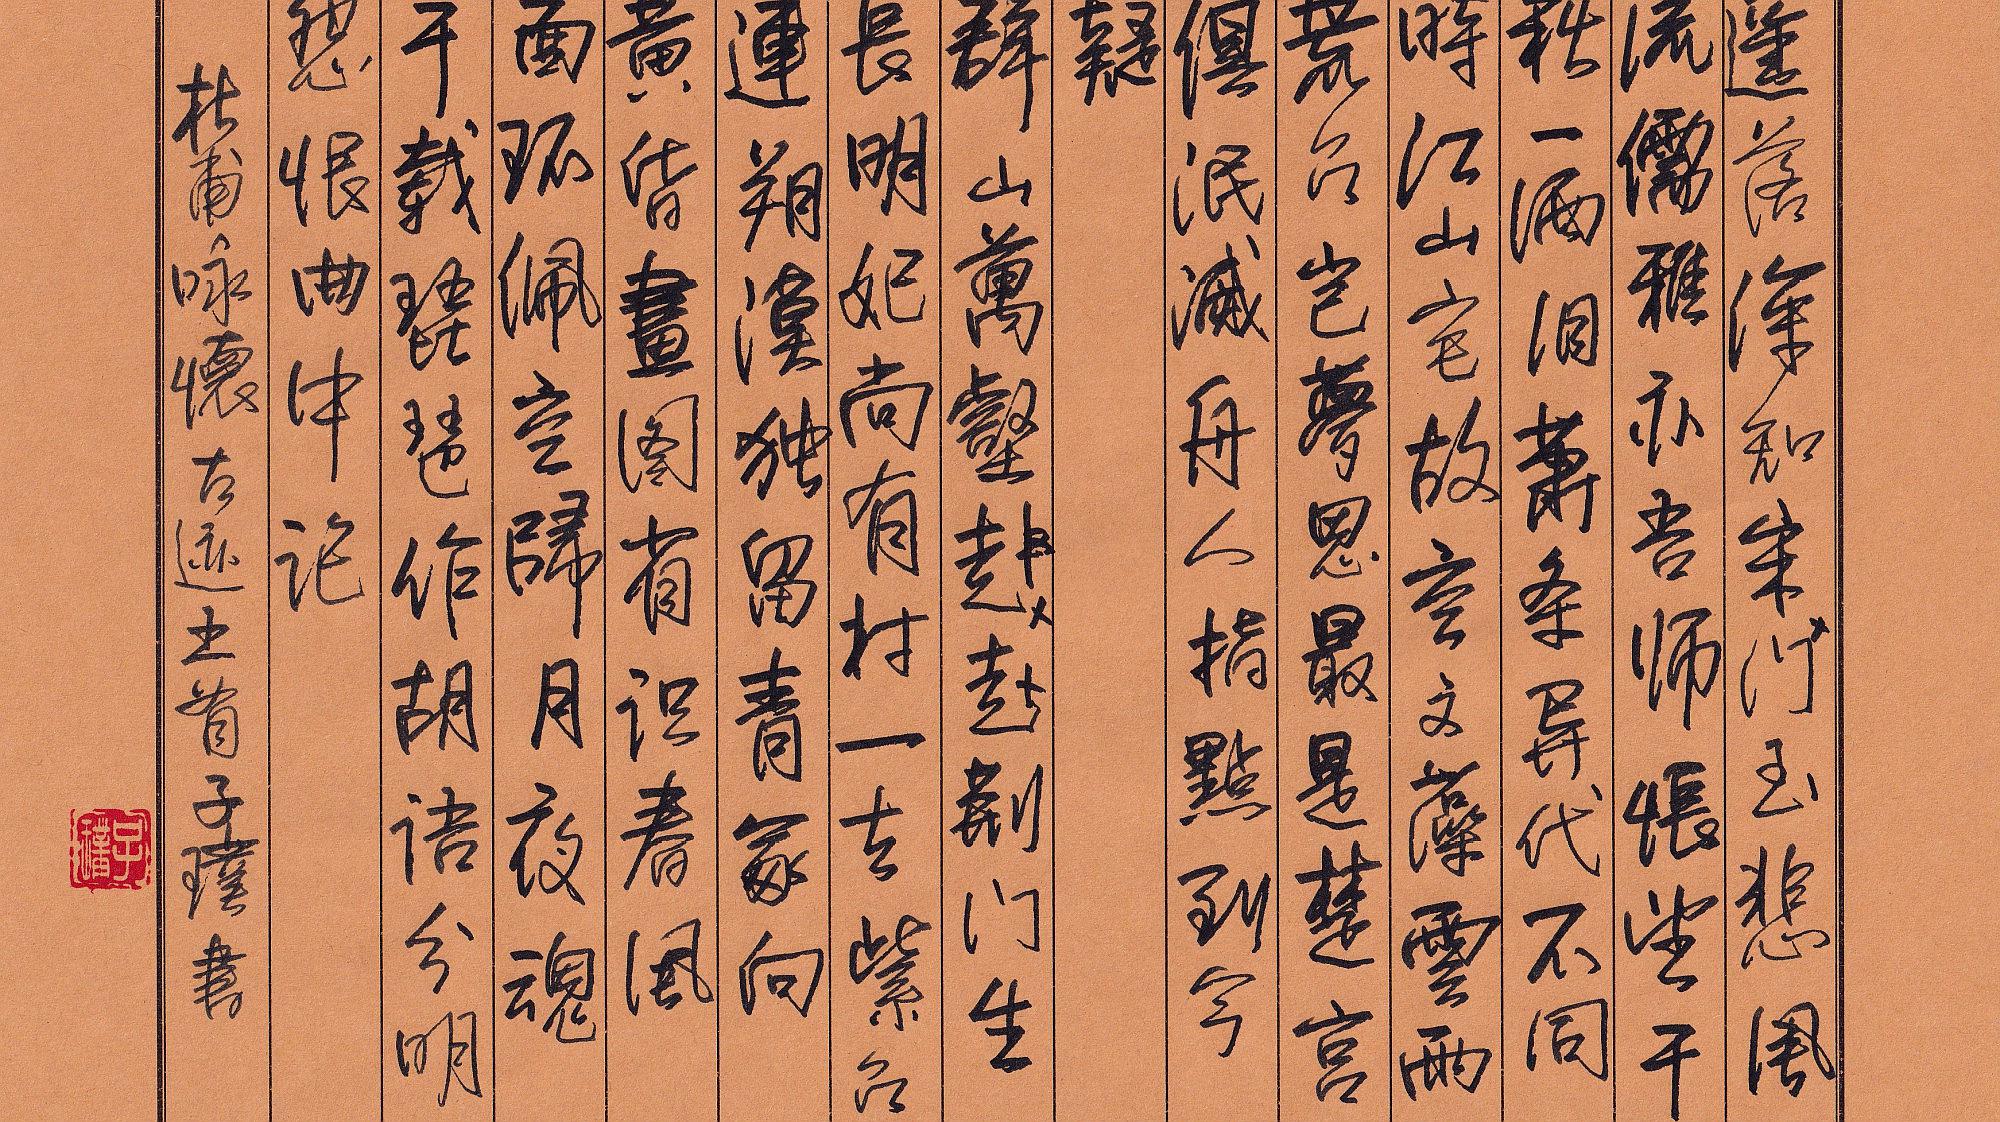 遥落深知宋门玉悲風
流儒雅亦吾师悵望千
秋一洒泪萧条异代不同
時江山宅故空文藻雲雨
荒台岂夢思最是楚宫
俱泯滅舟人指點到今
疑
群山萬壑赴赴荆门生
長明妃尚有村一去紫台
連朔漠独留青冢向
黄昏畫图省识春风
面环佩空歸月夜魂
千載琵琶作胡语分明
怨恨曲中论
杜甫咏懷古迹五首子璞書
子璞